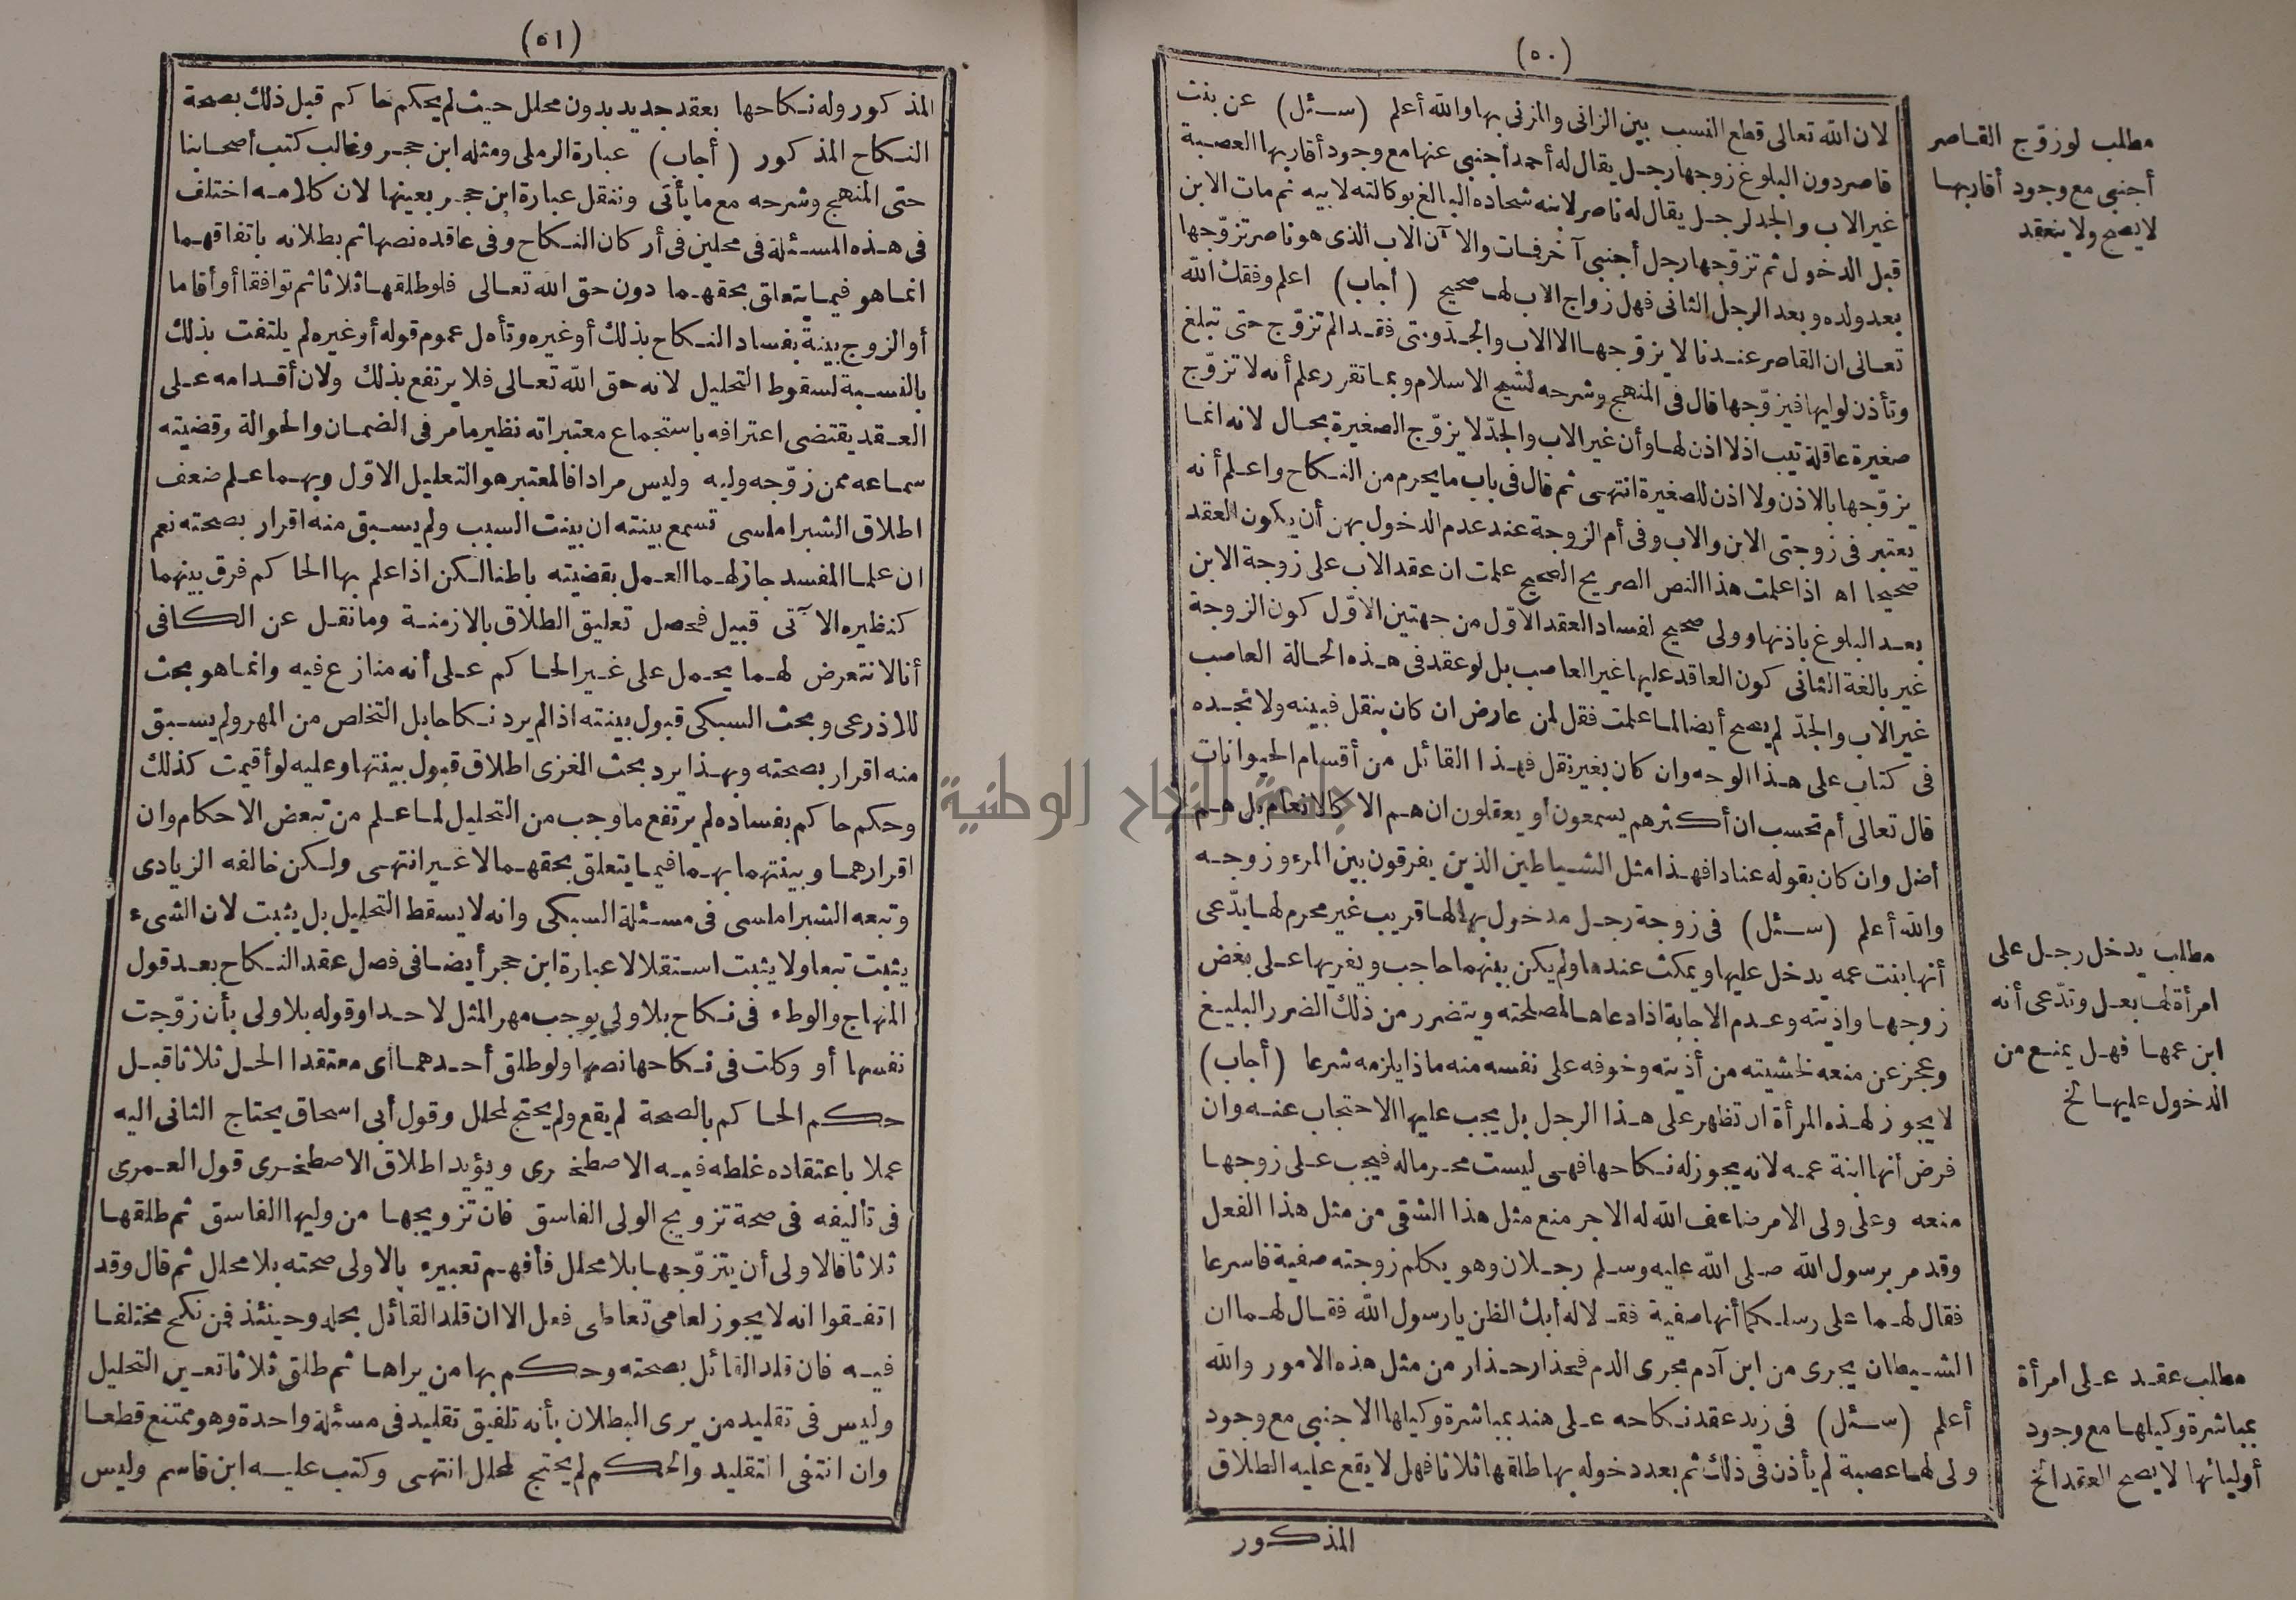 (٥٠)
لان الله تعالى قطع النسب بين الزانى والمزنى بها والله أعلم (سئل) عن بنت
قاصر دون البلوغ زوجها رجل يقال له أحمد أجنبي عنها مع وجود أقاربها العصبة
غير الاب والجد لرجل يقال له ناصر لابنه شحاده البالغ بوكالته لابيه ثم مات الابن
قبل الدخول ثم تزوجها رجل أجنبي آخر فمات والآن الاب الذى هو ناصر تزوّجها
بعد ولده وبعد الرجل الثانى فهل زواج الاب لها صحيح (أجاب) اعلم وفقك الله
تعالى ان القاصر عندنا لا يزوّجها الا الاب والجد ومتى فقد الم تزوّج حتى تبلغ
وتأذن لوليها فيزوّجها قال فى المنهج وشرحه لشيخ الاسلام وبما تقرر علم أنه لا تزوّج
صغيرة عاقلة ثيب اذلا اذن لها وأن غير الاب والجدّ لا يزوّج الصغيرة بحال لانه انما
يزوّجها بالاذن ولا اذن للصغيرة انتهى ثم قال فى باب ما يحرم من النكاح واعلم أنه
يعتبر فى زوجتى الابن والاب وفى أم الزوجة عند عدم الدخول بهن أن يكون العقد
صحيحا اه اذا علمت هذا النص الصريح الصحيح علمت ان عقد الاب على زوجة الابن
بعد البلوغ باذنها وولى صحيح لفساد العقد الاوّل من جهتين الاوّل كون الزوجة
غير بالغة الثانى كون العاقد عليها غير العاصب بل لو عقد فى هذه الحالة العاصب
غير الاب والجدّ لم يصح أيضا لما علمت فقل لمن عارض ان كان بنقل فبينه ولا تجده
فى كتاب على هذا الوجه وان كان بغير نقل فهذا القائل من أقسام الحيوانات
قال تعالى أم تحسب ان أكثرهم يسمعون أو يعقلون ان هم الا كالانعام بل هم
أضل وان كان بقوله عنادا فهذا مثل الشياطين الذين يفرقون بين المرء وزوجه
والله أعلم (سئل) فى زوجة رجل مدخول بها لها قريب غير محرم لها يدّعى
أنها بنت عمه يدخل عليها ويمكث عندها ولم يكن بينهما حاجب ويغريها على بغض
زوجها واذيته وعدم الاجابة اذا دعاها لمصلحته ويتضرر من ذلك الضرر البليغ
وعجز عن منعه لخشيته من أذيته وخوفه على نفسه منه ماذا يلزمه شرعا (أجاب)
لا يجوز لهذه المرأة ان تظهر على هذا الرجل بل يجب عليها الاحتجاب عنه وان
فرض أنها ابنة عمه لانه يجوز له نكاحها فهى ليست محرما له فيجب على زوجها
منعه وعلى ولى الامر ضاعف الله له الاجر منع مثل هذا الشقى من مثل هذا الفعل
وقد مر برسول الله صلى الله عليه وسلم رجلان وهو يكلم زوجته صفية فاسرعا
فقال لهما على رسلكما أنها صفية فقالا له أبك الظن يا رسول الله فقال لهما ان
الشيطان يجرى من ابن آدم مجرى الدم فحذار حذار من مثل هذه الامور والله
أعلم (سئل) فى زيد عقد نكاحه على هند بمباشرة وكيلها الاجنبي مع وجود
ولى لها عصبة لم يأذن فى ذلك ثم بعد دخوله بها طلقها ثلاثا فهل لا يقع عليه الطلاق
المذكور
مطلب لو زوّج القاصر
أجنبي مع وجود أقاربها
لا يصح ولا ينعقد
مطلب يدخل رجل على
امرأة لها بعل وتدّعى أنه
ابن عمها فهل يمنع من
الدخول عليها الخ
مطلب عقد على امرأة
بمباشرة وكيلها مع وجود
أوليائها لا يصح العقد الخ
(٥١)
المذكور وله نكاحها بعقد جديد بدون محلل حيث لم يحكم حاكم قبل ذلك بصحة
النكاح المذكور (أجاب) عبارة الرملى ومثله ابن حجر وغالب كتب أصحابنا
حتى المنهج وشرحه مع ما يأتى وننقل عبارة ابن حجر بعينها لان كلامه اختلف
فى هذه المسئلة فى محلين فى أركان النكاح وفى عاقده نصها ثم بطلانه باتفاقهما
انما هو فيما يتعلق بحقهما دون حق الله تعالى فلو طلقها ثلاثا ثم توافقا أو أقاما
أو الزوج بينة بفساد النكاح بذلك أو غيره وتأمل عموم قوله أو غيره لم يلتفت بذلك
بالنسبة لسقوط التحليل لانه حق الله تعالى فلا يرتفع بذلك ولان أقدامه على
العقد يقتضى اعترافه باستجماع معتبراته نظير ما مر فى الضمان والحوالة وقضيته
سماعه ممن زوّجه وليه وليس مرادا فالمعتبر هو التعليل الاوّل وبهما علم ضعف
اطلاق الشبراملسى تسمع بينته ان بينت السبب ولم يسبق منه اقرار بصحته نعم
ان علما المفسد جاز لهما العمل بقضيته باطنا لكن اذا علم بها الحاكم فرق بينهما
كنظيره الآتى قبيل فصل تعليق الطلاق بالازمنة وما نقل عن الكافى
أنا لا نتعرض لهما يحمل على غير الحاكم على أنه منازع فيه وانما هو بحث
للاذرعى وبحث السبكى قبول بينته اذا لم يرد نكاحا بل التخلص من المهر ولم يسبق
منه اقرار بصحته وبهذا يرد بحث الغزى اطلاق قبول بينتها وعليه لو أقيمت كذلك
وحكم حاكم بفساده لم يرتفع ما وجب من التحليل لما علم من تبعض الاحكام وان
اقرارهما وبينتهما بهما فيما يتعلق بحقهما لا غير انتهى ولكن خالفه الزيادى
وتبعه الشبراملسى فى مسئلة السبكى وانه لا يسقط التحليل بل يثبت لان الشىء
يثبت تبعا ولا يثبت استقلالا عبارة ابن حجر أيضا فى فصل عقد النكاح بعد قول
المنهاج والوطء فى نكاح بلا ولى يوجب مهر المثل لا حدا وقوله بلا ولى بأن زوّجت
نفسها أو وكلت فى نكاحها نصها ولو طلق أحدهما أى معتقدا الحل ثلاثا قبل
حكم الحاكم بالصحة لم يقع ولم يحتج لمحلل وقول أبى اسحاق يحتاج الثانى اليه
عملا باعتقاده غلطه فيه الاصطخرى ويؤيد اطلاق الاصطخرى قول العمرى
فى تأليفه فى صحة تزويج الولى الفاسق فان تزويجها من وليها الفاسق ثم طلقها
ثلاثا فالاولى أن يتزوّجها بلا محلل فأفهم تعبيره بالاولى صحته بلا محلل ثم قال وقد
اتفقوا انه لا يجوز لعامى تعاطى فعل الا ان قلد القائل بحله وحينئذ فمن نكح مختلفا
فيه فان قلد القائل بصحته وحكم بها من يراها ثم طلق ثلاثا تعين التحليل
وليس فى تقليد من يرى البطلان بأنه تلفيق تقليد فى مسئلة واحدة وهو ممتنع قطعا
وان انتفى التقليد والحكم لم يحتج لمحلل انتهى وكتب عليه ابن قاسم وليس
جامعة النجاح الوطنية